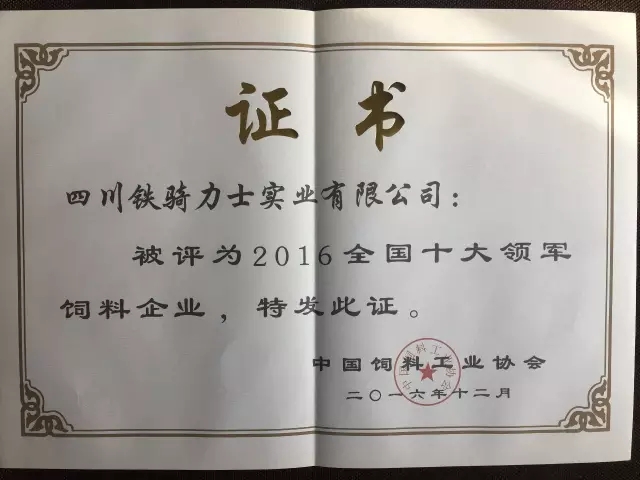 证书
四川铁骑力士实业有限公司：
被评为2016全国十大领军
饲料企业，特发此证。
中国饲料工业协会
二〇一六年十二月
中国饲料工业协会